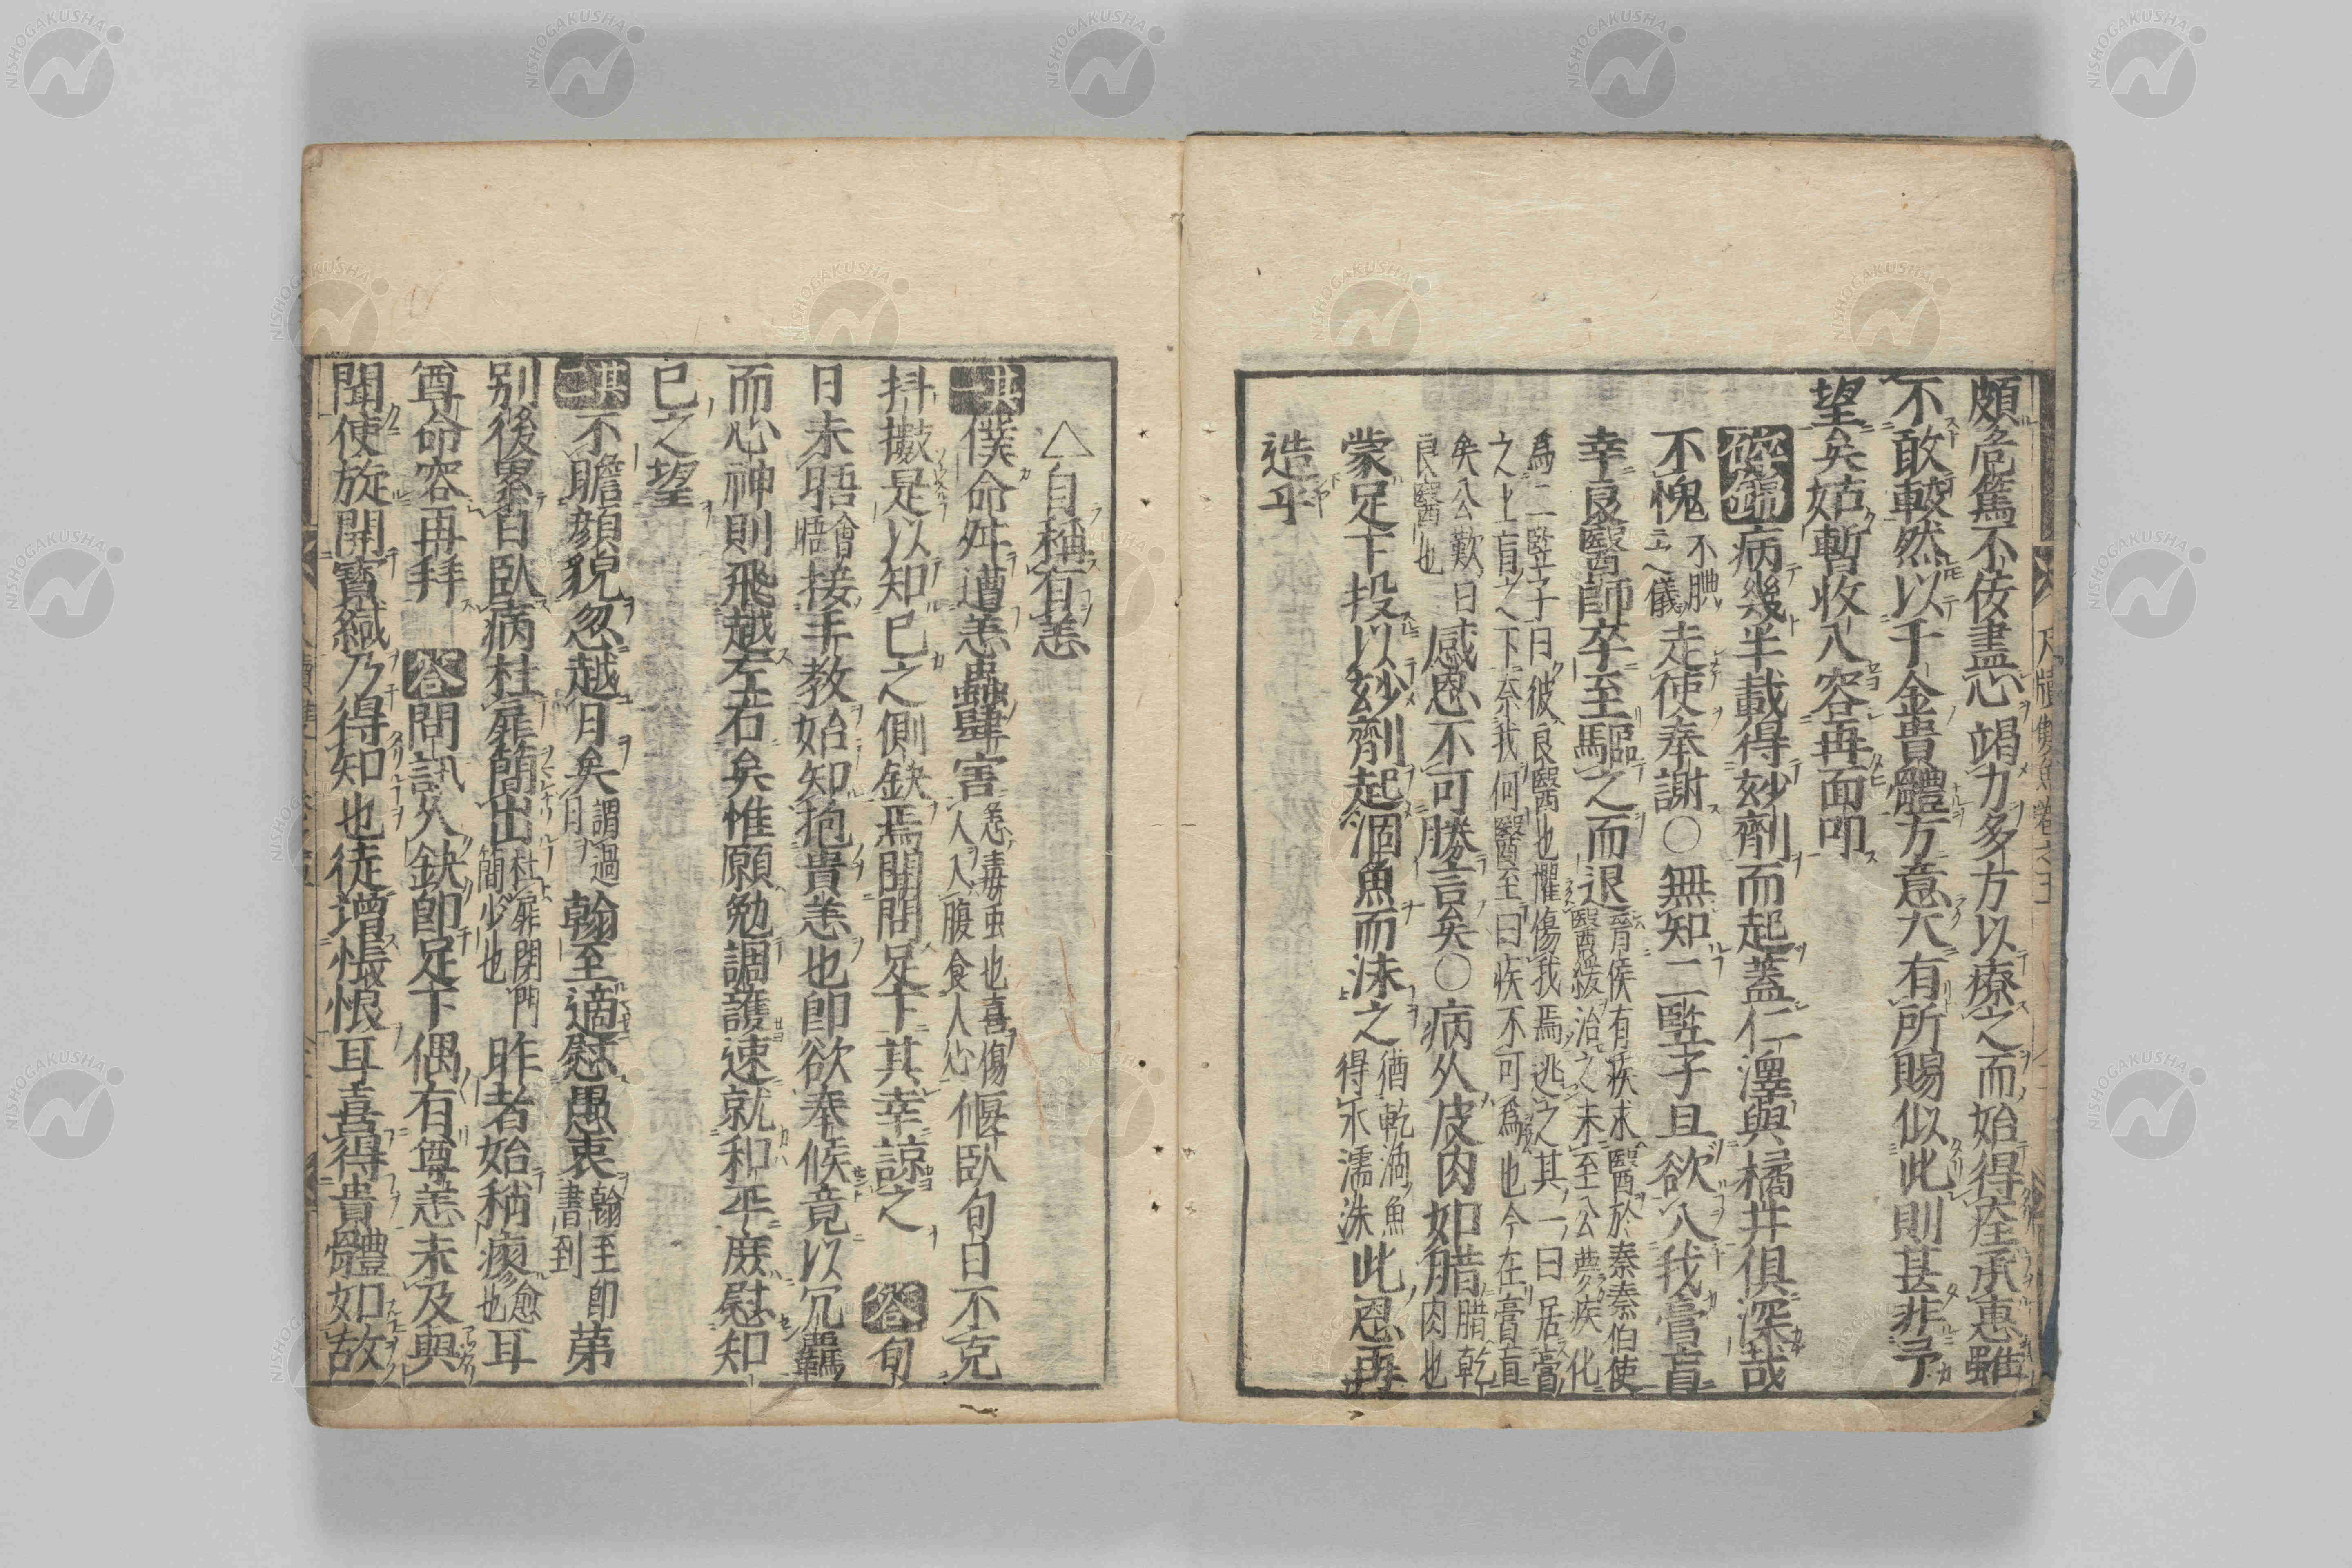 頗危篤不佞盡心竭力多方以療之而始得痊承惠雖
不敢較然以千金貴體方意大有所賜似此則甚非予
望矣姑暫收入容再面叩
病幾半載得玅劑而起蓋仁澤與橘井俱深哉
不愧不腆之儀走使奉謝〇無知二竪子且欲入我膏肓
幸良醫師卒至驅之而退晉侯有疾求醫於秦秦伯使醫緩治之未至公夢疾化
爲二竪子曰彼良醫也懼傷我焉逃之其一曰居膏
之上肓之下奈我何醫至曰疾不可爲也今在膏肓
矣公歎曰良醫也感恩不可勝言矣〇病久皮肉如腊腊乾肉也
蒙足下投以玅劑起涸魚而沫之猶乾涸魚得水濡沫此恩再
造乎
△自稱有恙
其一僕命舛遭恙蟲肆害恙毒虫也喜傷人入人腹食人心偃臥旬日不克
抖擻是以知己之側缺焉聞問足下其幸諒之 答旬
日未晤會晤接手教始知抱貴恙也即欲奉候竟以冗羈
而心神則飛越左右矣惟願勉調護速就和平庶慰知
己之望
其二不瞻顔貌忽越月矣謂過月翰至適慰愚衷翰至即書到第
別後累日臥病杜扉簡出杜扉閉門簡少也昨者始稍瘳愈也耳
尊命容再拜 答問訊久缺即足下偶有尊恙未及與
聞使旋開寶緘乃得知也徒增悵恨耳喜得貴體如故